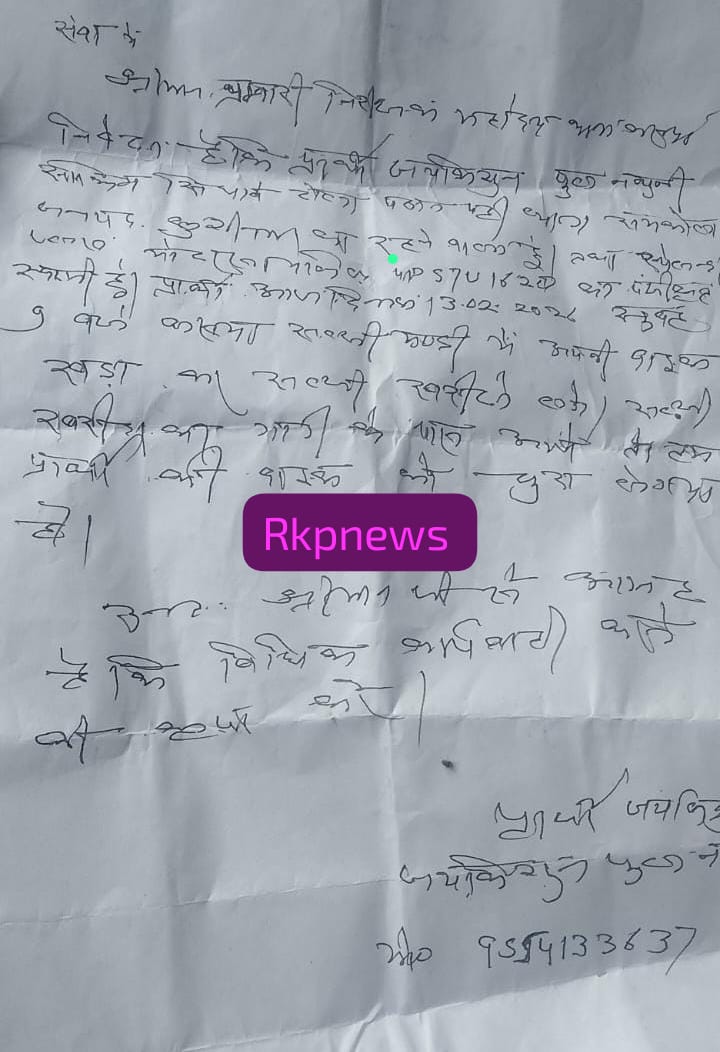 सेवा में
श्रीमान प्रभारी निरीक्षक महोदय थाना
निवेदन है कि प्रार्थी जयकिशुन पुत्र
टोला थाना
जनपद कुशीनगर का रहने वाला है। तथा
मोटरसाइकिल UP57U1620 का पंजीकृत
स्वामी है। प्रार्थी आज दिनांक 13.02.2026 सुबह
9 बजे सब्जी मण्डी में अपनी बाइक
खड़ा कर सब्जी खरीदने लगे। सब्जी
खरीद कर गाड़ी के पास आये तो
प्रार्थी की बाइक को चुरा ले गया
है।
Rkpnews
अतः श्रीमान जी से
है कि विधिक कार्यवाही करने
की कृपा करें।
प्रार्थी
जयकिशुन पुत्र
मो० 9554133637